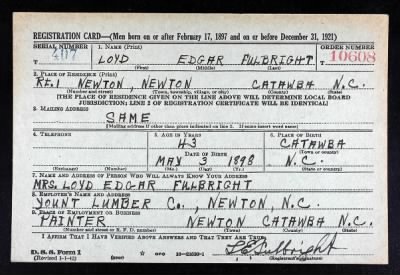 REGISTRATION CARD—(Men born on or after February 17, 1897 and on or before December 31, 1921)
SERIAL NUMBER 1. NAME (Print) ORDER NUMBER
T 407 LOYD EDGAR FULBRIGHT T 10608
(First) (Middle) (Last)
2. PLACE OF RESIDENCE (Print)
Rt.1 NEWTON, NEWTON CATAWBA N.C.
(Number and street) (Town, township, village, or city) (County) (State)
[THE PLACE OF RESIDENCE GIVEN ON THE LINE ABOVE WILL DETERMINE LOCAL BOARD
JURISDICTION; LINE 2 OF REGISTRATION CERTIFICATE WILL BE IDENTICAL]
3. MAILING ADDRESS
SAME
[Mailing address if other than place indicated on line 2. If same insert word same]
4. TELEPHONE 5. AGE IN YEARS 6. PLACE OF BIRTH
43 CATAWBA
DATE OF BIRTH (Town or county)
MAY 3 1898 N.C.
(Exchange) (Number) (Mo.) (Day) (Yr.) (State or country)
7. NAME AND ADDRESS OF PERSON WHO WILL ALWAYS KNOW YOUR ADDRESS
MRS. LOYD EDGAR FULBRIGHT
8. EMPLOYER'S NAME AND ADDRESS
YOUNT LUMBER Co., NEWTON, N.C.
9. PLACE OF EMPLOYMENT OR BUSINESS
PAINTER NEWTON CATAWBA N.C.
(Number and street or R. F. D. number) (Town) (County) (State)
I AFFIRM THAT I HAVE VERIFIED ABOVE ANSWERS AND THAT THEY ARE TRUE.
D. S. S. Form 1
(Revised 1-1-42) (over) GPO 16—21630-1 L E Fulbright
(Registrant's signature)